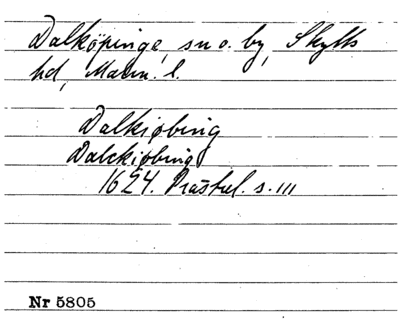 Dalköpinge, sn o. by, Skytts
hd, Malm. l.
Dalkiøbing
Dalckiøbing
1624. Prästrel. s. 111
Nr 5805